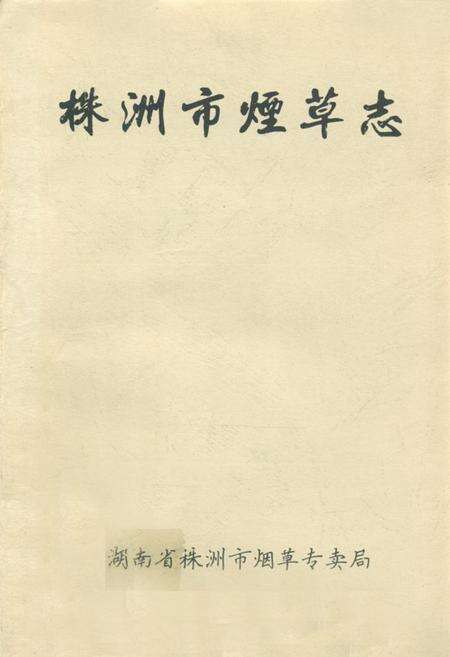 株洲市煙草志
湖南省株洲市烟草专卖局